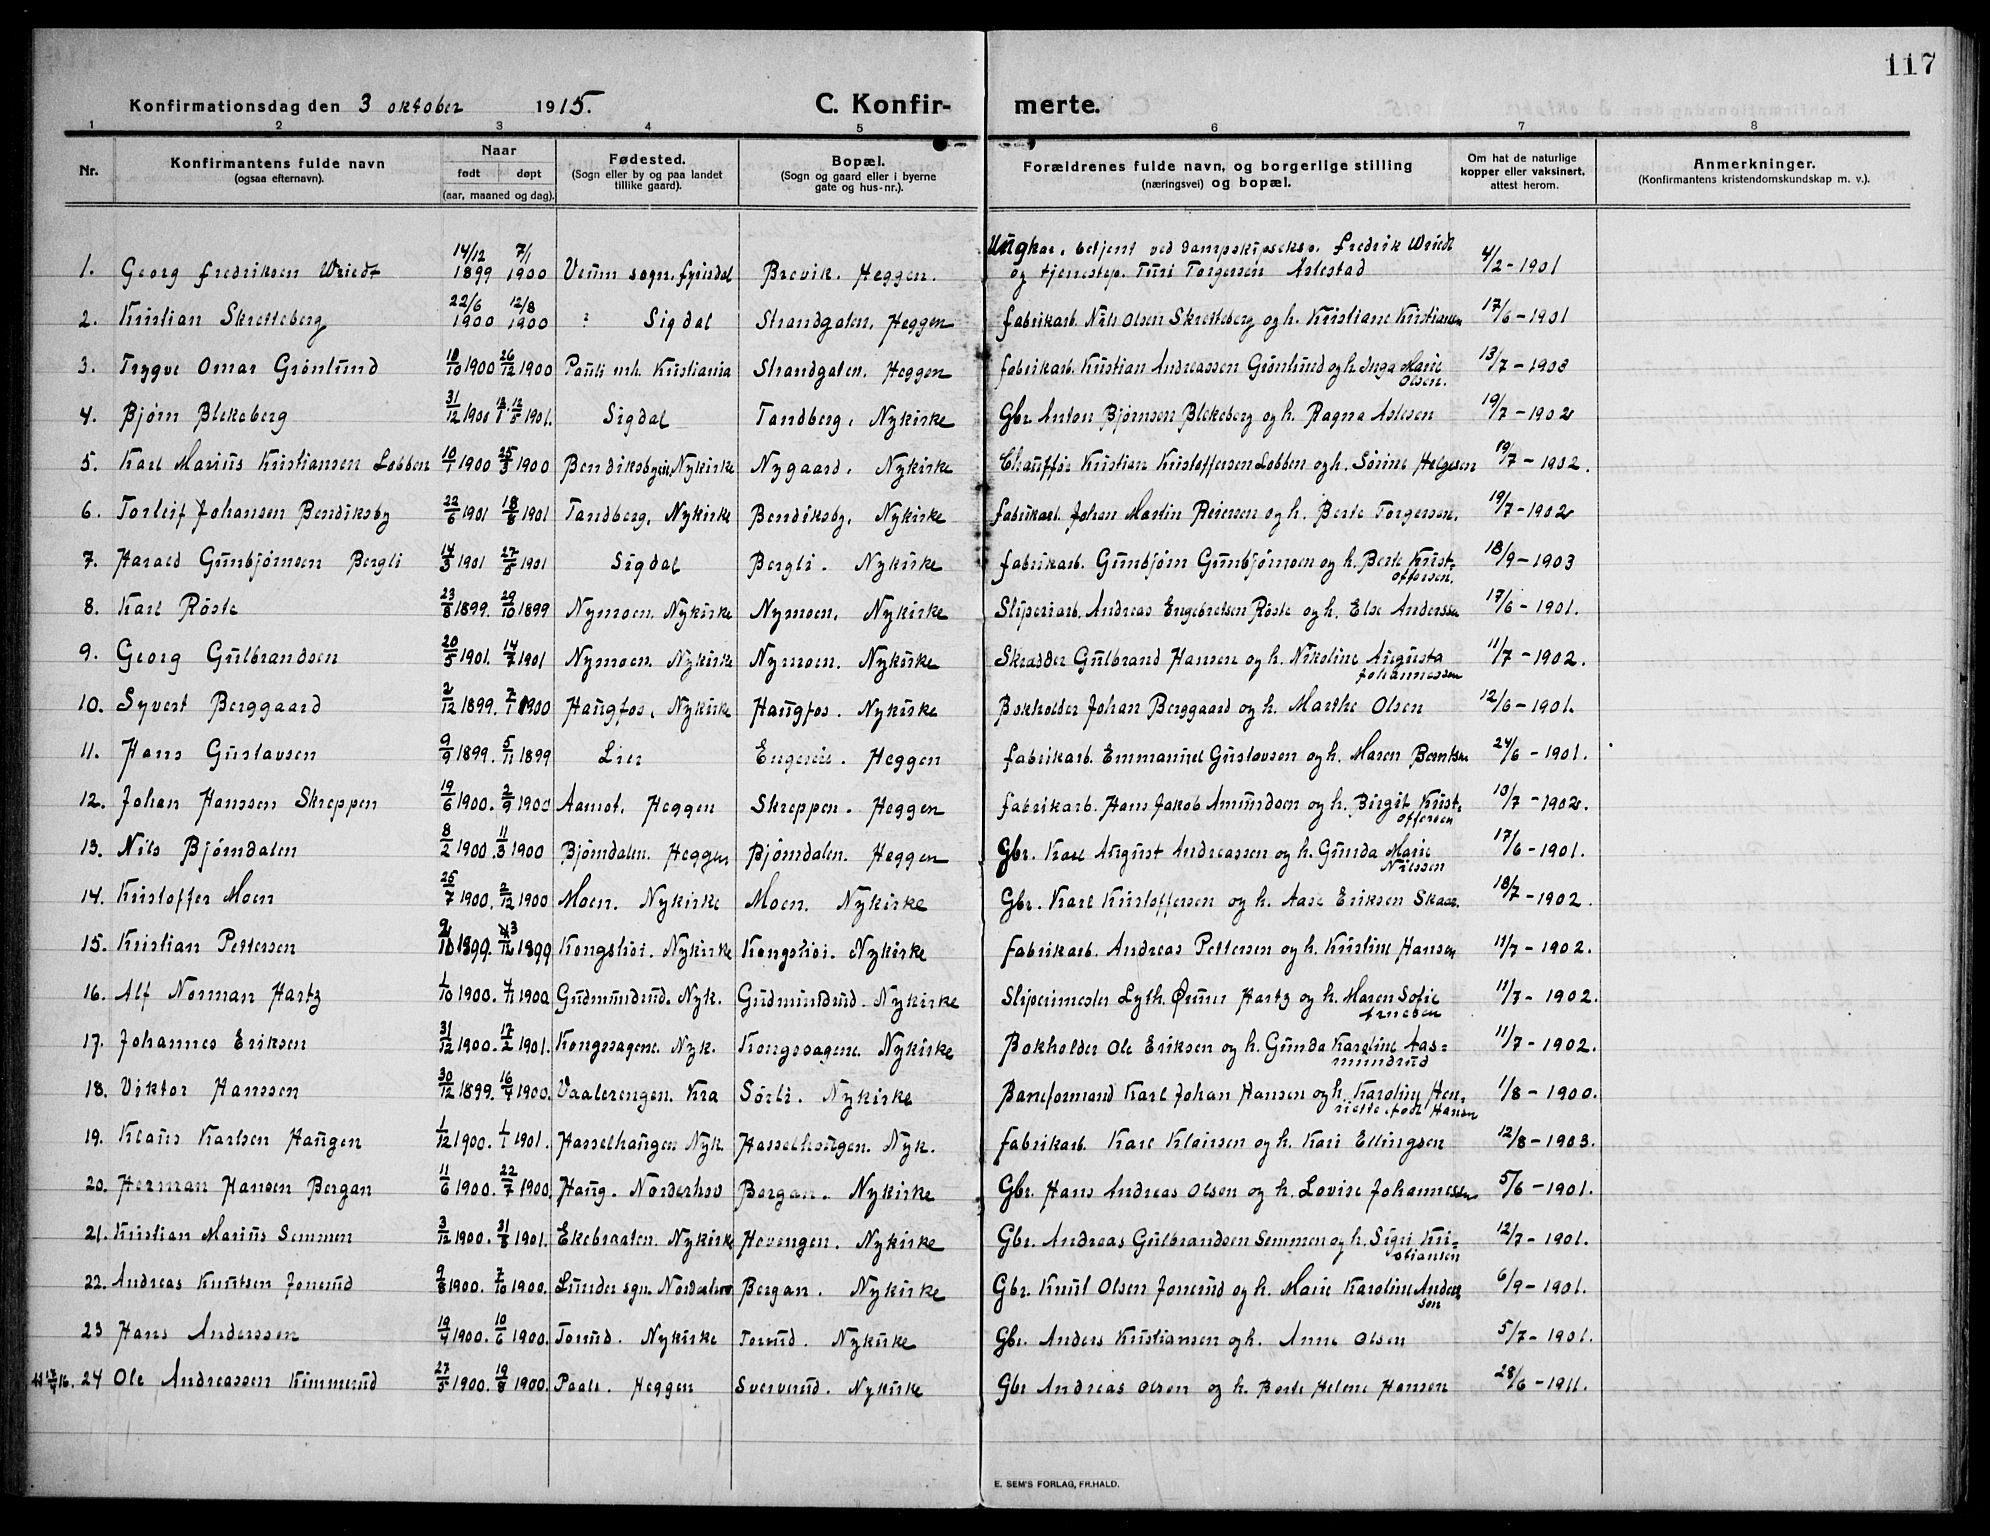 117
Konfirmationsdag den 3 oktober 1915. C. Konfir- merte.
1 2 3 4 5 6 7 8
Nr. Konfirmantens fulde navn (ogsaa efternavn). Naar født døpt (aar, maaned og dag). Fødested. (Sogn eller by og paa landet tillike gaard). Bopæl. (Sogn og gaard eller i byerne gate og hus-nr.). Forældrenes fulde navn, og borgerlige stilling (næringsvei) og bopæl. Om hat de naturlige kopper eller vaksinert, attest herom. Anmerkninger. (Konfirmantens kristendomskundskap m. v.).
1. Georg Fredriksen Wriedt 14/12 1899 7/1 1900 Veum sogn. Fyrisdal Brevik. Heggen. Ungkar, betjent ved dampskipseksp. Fredrik Wriedt og tjenestep. Turi Torgersen Aslestad 4/2-1901
2. Kristian Skretteberg 22/6 1900 12/8 1900 Sigdal Strandgaten, Heggen fabrikarb. Nils Olsen Skretteberg og h. Kristiane Kristiansen 17/6-1901
3. Trygve Omar Grønlund 18/10 1900 26/12 1900 Pauli mh. Kristiania Strandgaten. Heggen fabrikarb. Kristian Andreassen Grønlund og h. Inga Marie Olsen. 13/7-1903
4. Bjørn Blekeberg 31/12 1900 12/5 1901. Sigdal Tandberg, Nykirke Gbr. Anton Bjørnsen Blekeberg og h. Ragna Aslesen 19/7-1902
5. Karl Marius Kristiansen Lobben 10/1 1900 25/3 1900 Bendiksbyeie, Nykirke Nygaard. Nykirke Chauffør Kristian Kristoffersen Lobben og h. Sørine Helgesen 19/7-1902.
6. Torleif Johansen Bendiksby 22/6 1901 18/8 1901 Tandberg, Nykirke Bendiksby, Nykirke fabrikarb. Johan Martin Reiersen og h. Berte Torgersen. 19/7-1902
7. Harald Gunbjørnsen Bergli 14/3 1901 27/5 1901 Sigdal Bergli. Nykirke fabrikarb. Gunbjørn Gunbjørnsen og h. Berte Kristoffersen. 18/9-1903
8. Karl Røste 23/8 1899. 29/10 1899 Nymoen. Nykirke Nymoen. Nykirke Sliperiarb. Andreas Engebretsen Røste og h. Else Anderssen 17/6-1901.
9. Georg Gulbrandsen 20/5 1901. 14/7 1901 Nymoen. Nykirke Nymoen. Nykirke Skrædder Gulbrand Hansen og h. Nikoline Augusta Johannessen 11/7-1902.
10. Syvert Berggaard 2/12 1899. 7/1 1900 Haugfos, Nykirke Haugfos. Nykirke Bokholder Johan Berggaard og h. Marthe Olsen 12/6-1901.
11. Hans Gustavsen 9/9 1899. 5/11 1899 Lier Engereie. Heggen fabrikarb. Emmanuel Gustavsen og h. Maren Berntsen 24/6-1901.
12. Johan Hanssen Skreppen 19/6 1900. 2/9 1900 Aamot, Heggen Skreppen. Heggen fabrikarb. Hans Jakob Amundsen og h. Birgit Kristoffersen 10/7-1902.
13. Nils Bjørndalen 8/2 1900. 11/3 1900 Bjørndalen. Heggen Bjørndalen. Heggen Gbr. Karl August Andreassen og h. Gunda Marie Nilssen 17/6-1901.
14. Kristoffer Moen 25/7 1900. 2/12 1900 Moen. Nykirke Moen. Nykirke Gbr. Karl Kristoffersen og h. Aase Eriksen Skaar. 18/7-1902.
15. Kristian Pettersen 2/10 1899. 3/12 1899 Kongshøi. Nykirke Kongshøi. Nykirke fabrikarb. Andreas Pettersen og h. Kristine Hansen 11/7-1902.
16. Alf Norman Hartz 1/10 1900. 4/11 1900. Gudmundrud. Nyk. Gudmundrud. Nykirke Sliperimester Lyth. Hartz og h. Maren Sofie Arnesen 11/7-1902.
17. Johannes Eriksen 31/12 1900. 17/2 1901. Kongssagene. Nyk. Kongssagene. Nykirke Bokholder Ole Eriksen og h. Gunda Karoline Aas= mundrud 11/7-1902.
18. Viktor Hanssen 30/12 1899. 16/4 1900. Vaalerengen. Kra Sørli. Nykirke Baneformand Karl Johan Hansen og h. Karoline Henriette, født Hansen 1/8-1900.
19. Klaus Karlsen Haugen 1/12 1900. 1/1 1901. Hasselhaugen. Nyk. Hasselhaugen. Nyk. fabrikarb. Karl Klausen og h. Kari Ellingsen 12/8-1903.
20. Herman Hansen Bergan 11/6 1900. 22/7 1900. Haug. Norderhov Bergan. Nykirke Gbr. Hans Andreas Olsen og h. Lovise Johannessen 5/6-1901.
21. Kristian Marius Semmen 3/12 1900. 31/8 1901. Ekebraaten. Nykirke Hovengen. Nykirke Gbr. Andreas Gulbrandsen Semmen og h. Sigri Kri= stiansen 12/7-1901.
22. Andreas Knutsen Jonerud 9/8 1900. 7/10 1900. Lunder sgn. Norderhov Bergan. Nykirke Gbr. Knut Olsen Jonerud og h. Marie Karoline Andersson 6/9-1901.
23 Hans Anderssen 19/4 1900. 10/6 1900. Torud. Nykirke Torud. Nykirke Gbr. Anders Kristiansen og h. Anne Olsen 5/7-1901.
17/4 16. 24 Ole Andreassen Kimmerud 27/5 1900. 19/8 1900. Paale. Heggen Sververud. Nykirke Gbr Andreas Olsen og h. Berte Helene Hansen 28/6-1911.
E. SEM'S FORLAG, FR.HALD.